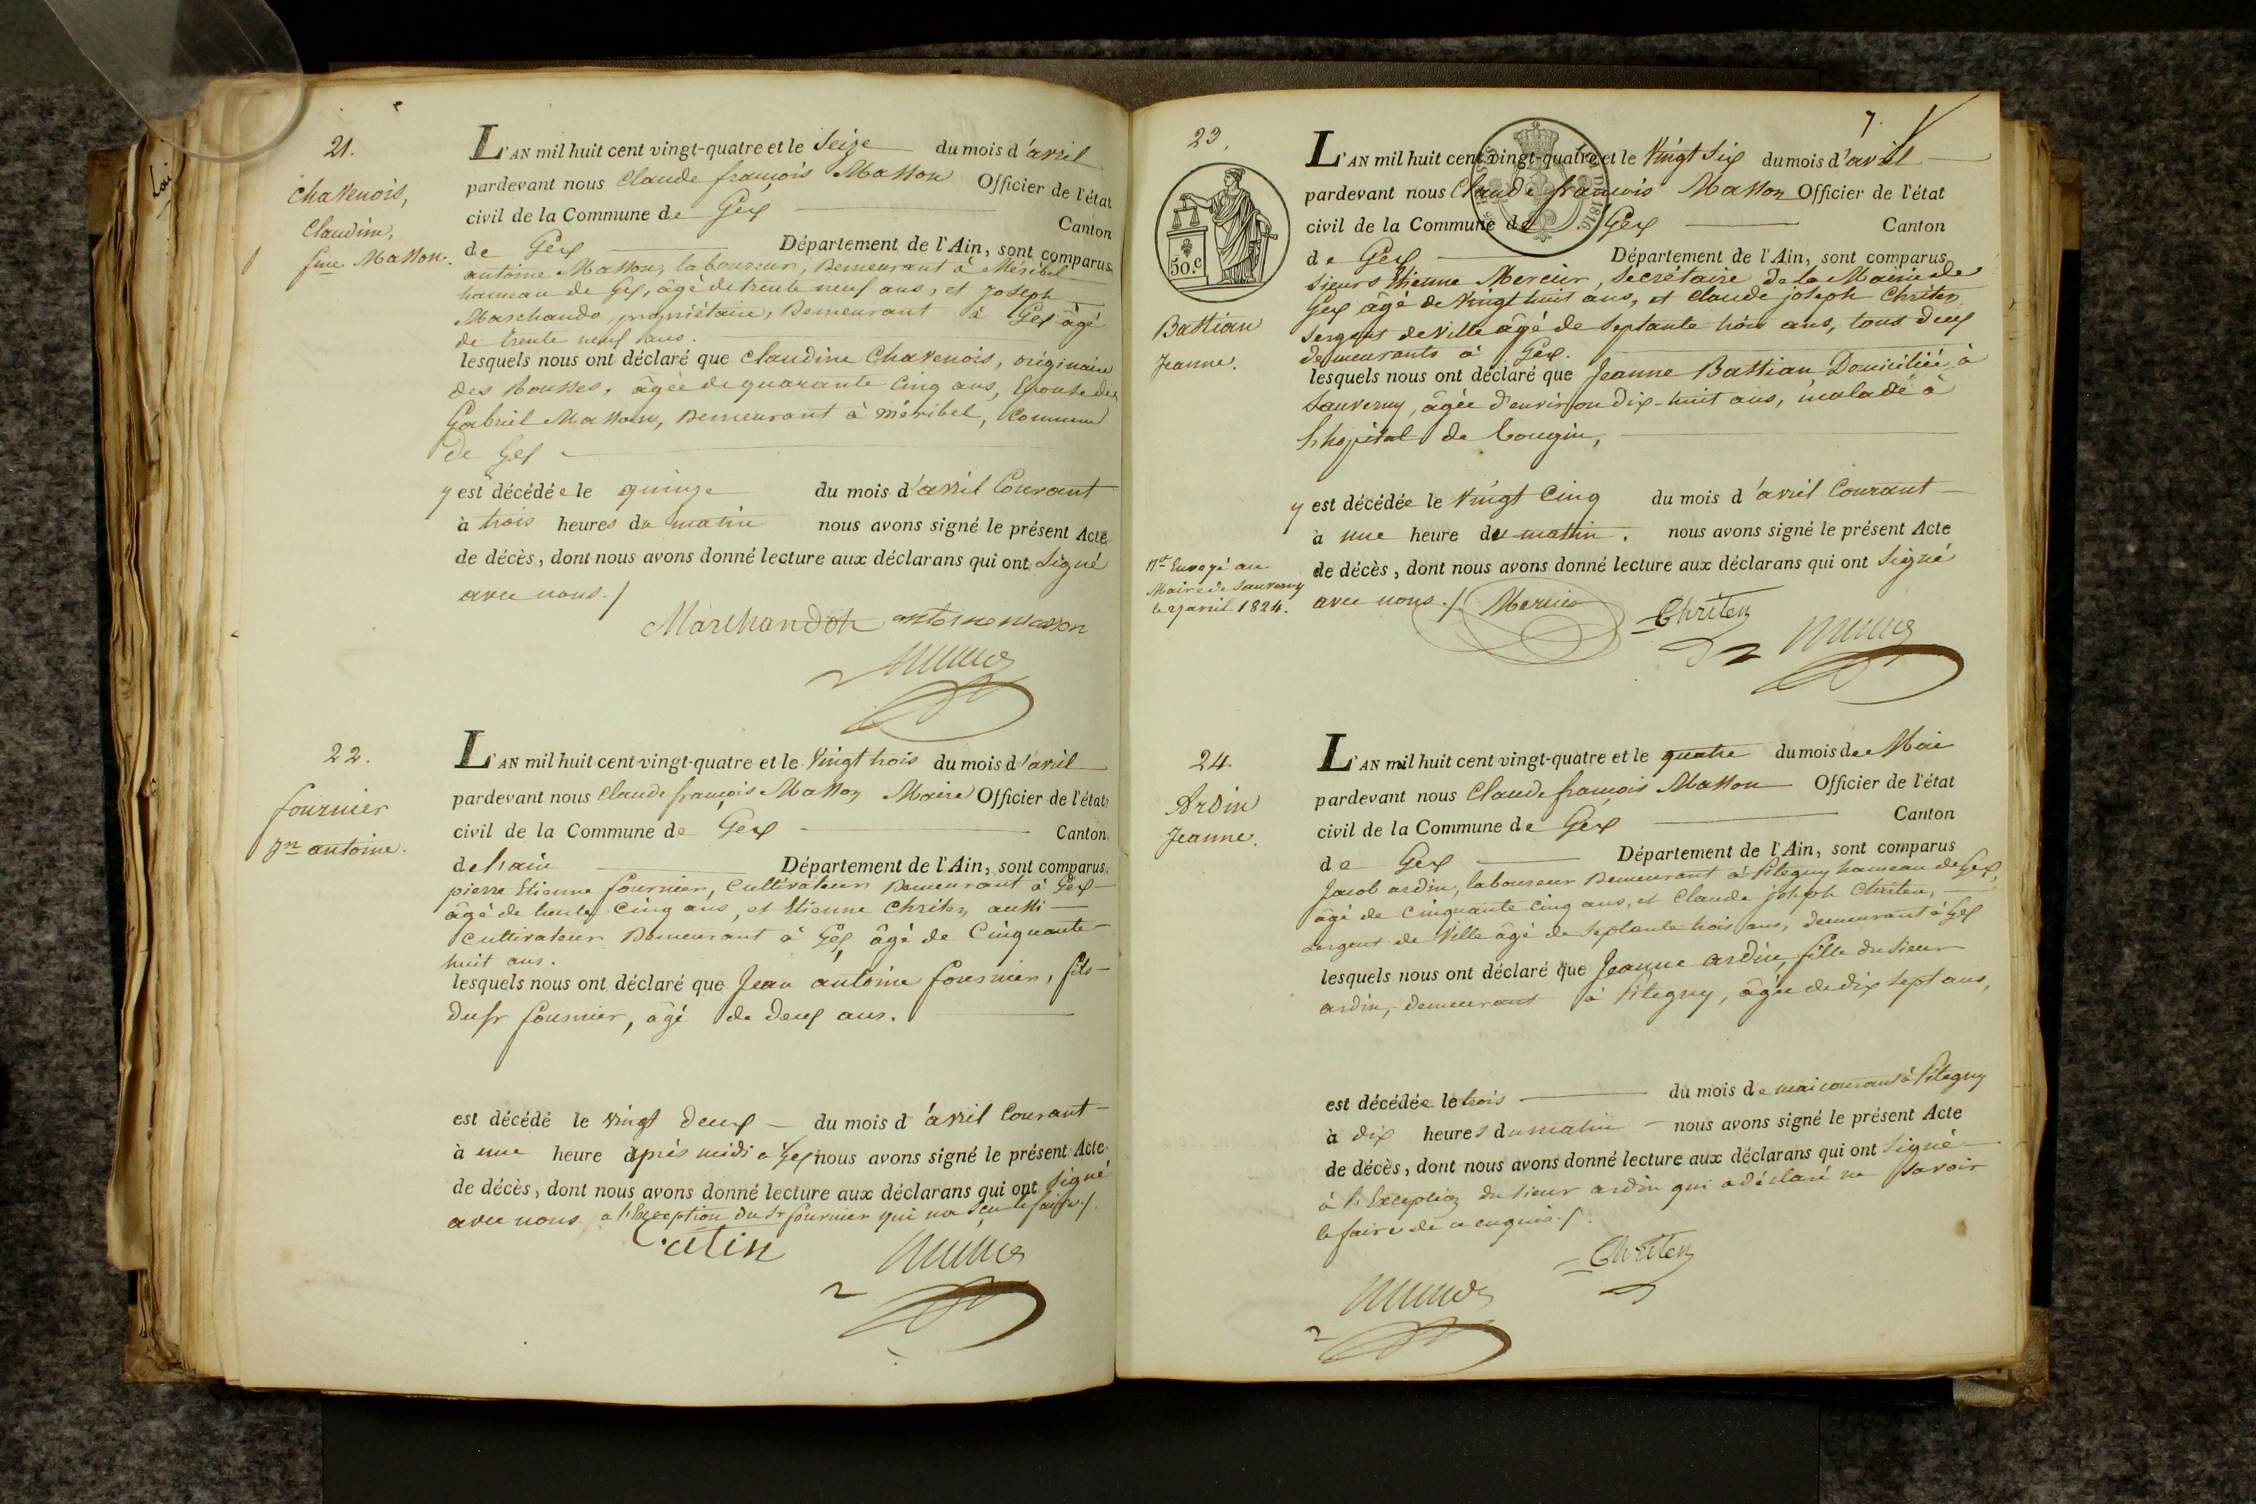 21.
Chavenois,
Claudine,
fme Masson.
L'AN mil huit cent vingt-quatre et le Seize du mois d'avril
pardevant nous Claude françois Masson Officier de l'état
civil de la Commune de Gex Canton
de Gex Département de l'Ain, sont comparus
antoine Masson, laboureur, Demeurant à Méribel
hameau de Gex, âgé de trente neuf ans, et Joseph
Marchando, propriétaire, Demeurant à Gex âgé
de trente neuf ans.
lesquels nous ont déclaré que Claudine Chavenois, originaire
des Rousses, âgée de quarante Cinq ans, Epouse de
Gabriel Masson, Demeurant à Méribel, Commune
de Gex
y est décédée le quinze du mois d'avril Courant
à trois heures du matin nous avons signé le présent Acte
de décès, dont nous avons donné lecture aux déclarans qui ont Signé
avec nous./
Marchandot antoine masson
22.
fournier
Jn antoine.
L'AN mil huit cent vingt-quatre et le Vingt trois du mois d'avril
pardevant nous Claude françois Masson Maire Officier de l'état
civil de la Commune de Gex Canton
de Département de l'Ain, sont comparus
pierre Etienne fournier, Cultivateur Demeurant à Gex
âgé de trente Cinq ans, et Etienne Chriten aussi
Cultivateur Demeurant à Gex, âgé de Cinquante
huit ans.
lesquels nous ont déclaré que Jean antoine fournier, fils
du sr fournier, âgé de deux ans.
est décédé le vingt deux du mois d'avril Courant
à une heure après midi à Gex nous avons signé le présent Acte
de décès, dont nous avons donné lecture aux déclarans qui ont signé
avec nous a l'Exception du Sr fournier qui na Sçu le faire./.
23.
50.c
Bastian
Jeanne.
7.
L'AN mil huit cent vingt-quatre et le Vingt Six du mois d'avril
pardevant nous Claude françois Masson Officier de l'état
civil de la Commune de Gex Canton
de Gex Département de l'Ain, sont comparus
Sieurs Etienne Mercier, Secrétaire de la Mairie de
Gex âgé de Vingt huit ans, et Claude joseph Chriten
Sergent de Ville âgé de Septante trois ans, tous deux
demeurants à Gex.
lesquels nous ont déclaré que Jeanne Bastian Domiciliée à
Sauverny, âgée d'environ dix-huit ans, malade à
l'hopital de Tougin,
y est décédée le Vingt Cinq du mois d'avril Courant
à une heure du matin. nous avons signé le présent Acte
de décès, dont nous avons donné lecture aux déclarans qui ont Signé
avec nous./. Mercier Chriten
Envoyé au
Maire de Sauverny
le 27 avril 1824.
24.
Ardin
Jeanne.
L'AN mil huit cent vingt-quatre et le quatre du mois de Mai
pardevant nous Claude françois Masson Officier de l'état
civil de la Commune de Gex Canton
de Gex Département de l'Ain, sont comparus
Jacob ardin, laboureur Demeurant à Pitegny hameau de Gex,
âgé de Cinquante Cinq ans, et Claude joseph Chriten,
sergent de Ville âgé de Septante trois ans, demeurant à Gex
lesquels nous ont déclaré que Jeanne ardin, fille du Sieur
ardin, demeurant à Pitegny, âgée de dix sept ans,
est décédée le trois du mois de mai courant à Pitegny
à dix heures du matin nous avons signé le présent Acte
de décès, dont nous avons donné lecture aux déclarans qui ont Signé
à l'Exception du Sieur ardin qui a déclaré ne Savoir
le faire de ce enquis./.
Chriten